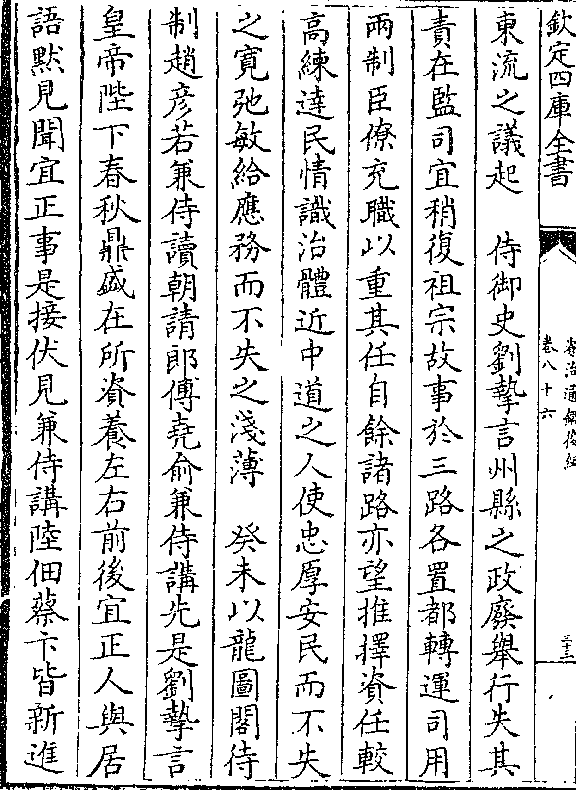 欽定四庫全書
卷八十六
三十三
東流之議起　侍御史劉摯言州縣之政廢舉行失其
責在監司宜稍復祖宗故事於三路各置都轉運司用
兩制臣僚充職以重其任自餘諸路亦望推擇資任較
高練達民情識治體近中道之人使忠厚安民而不失
之寛弛敏給應務而不失之淺薄　癸未以龍圖閣待
制趙彦若兼侍讀朝請郎傅堯俞兼侍講先是劉摯言
皇帝陛下春秋鼎盛在所資養左右前後宜正人與居
語黙見聞宜正事是接伏見兼侍講陸佃蔡卞皆新進